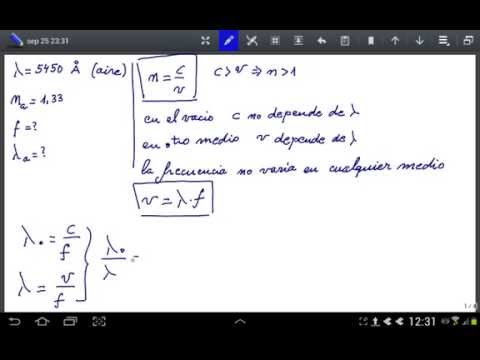 sep 25 23:31
λ = 5450 Å (aire)
n_a = 1,33
f = ?
λ_a = ?
n = c/v
c > v ⇒ n > 1
en el vacio c no depende de λ
en otro medio v depende de λ
la frecuencia no varia en cualquier medio
v = λ·f
λ₀ = c/f
λ = v/f
} λ₀/λ =
12:31